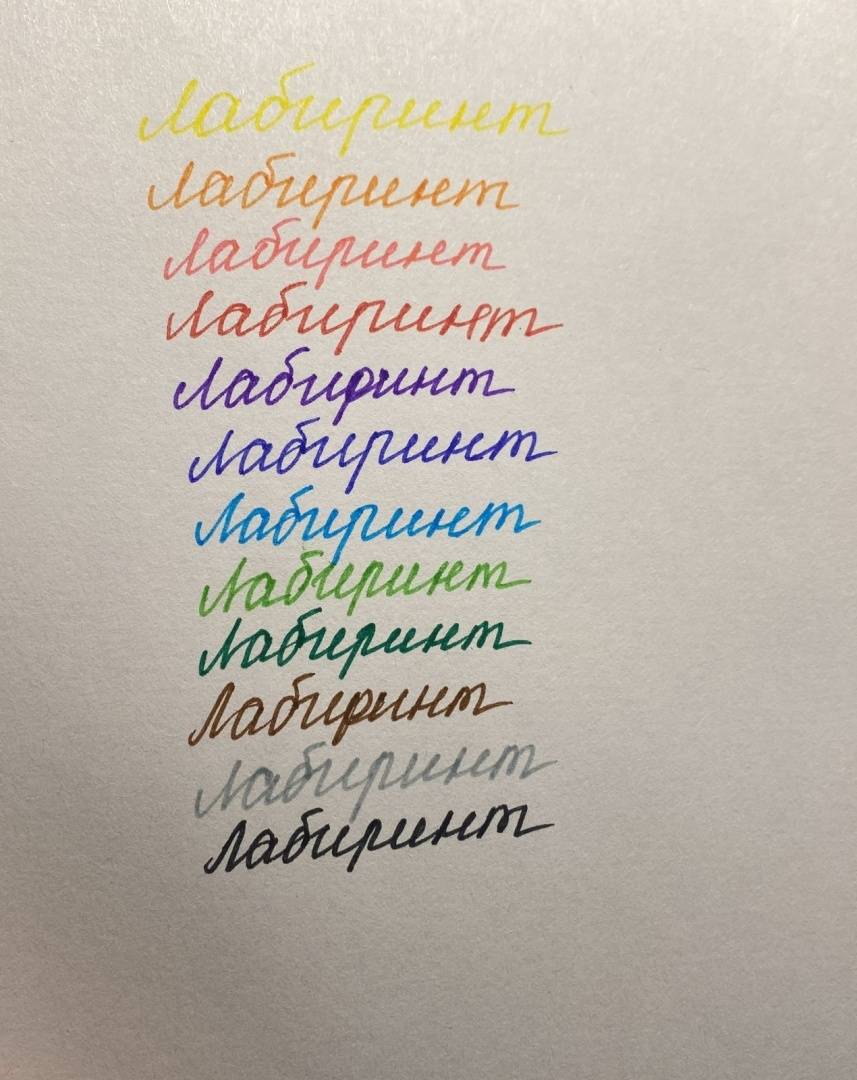 Лабиринт
Лабиринт
Лабиринт
Лабиринт
Лабиринт
Лабиринт
Лабиринт
Лабиринт
Лабиринт
Лабиринт
Лабиринт
Лабиринт